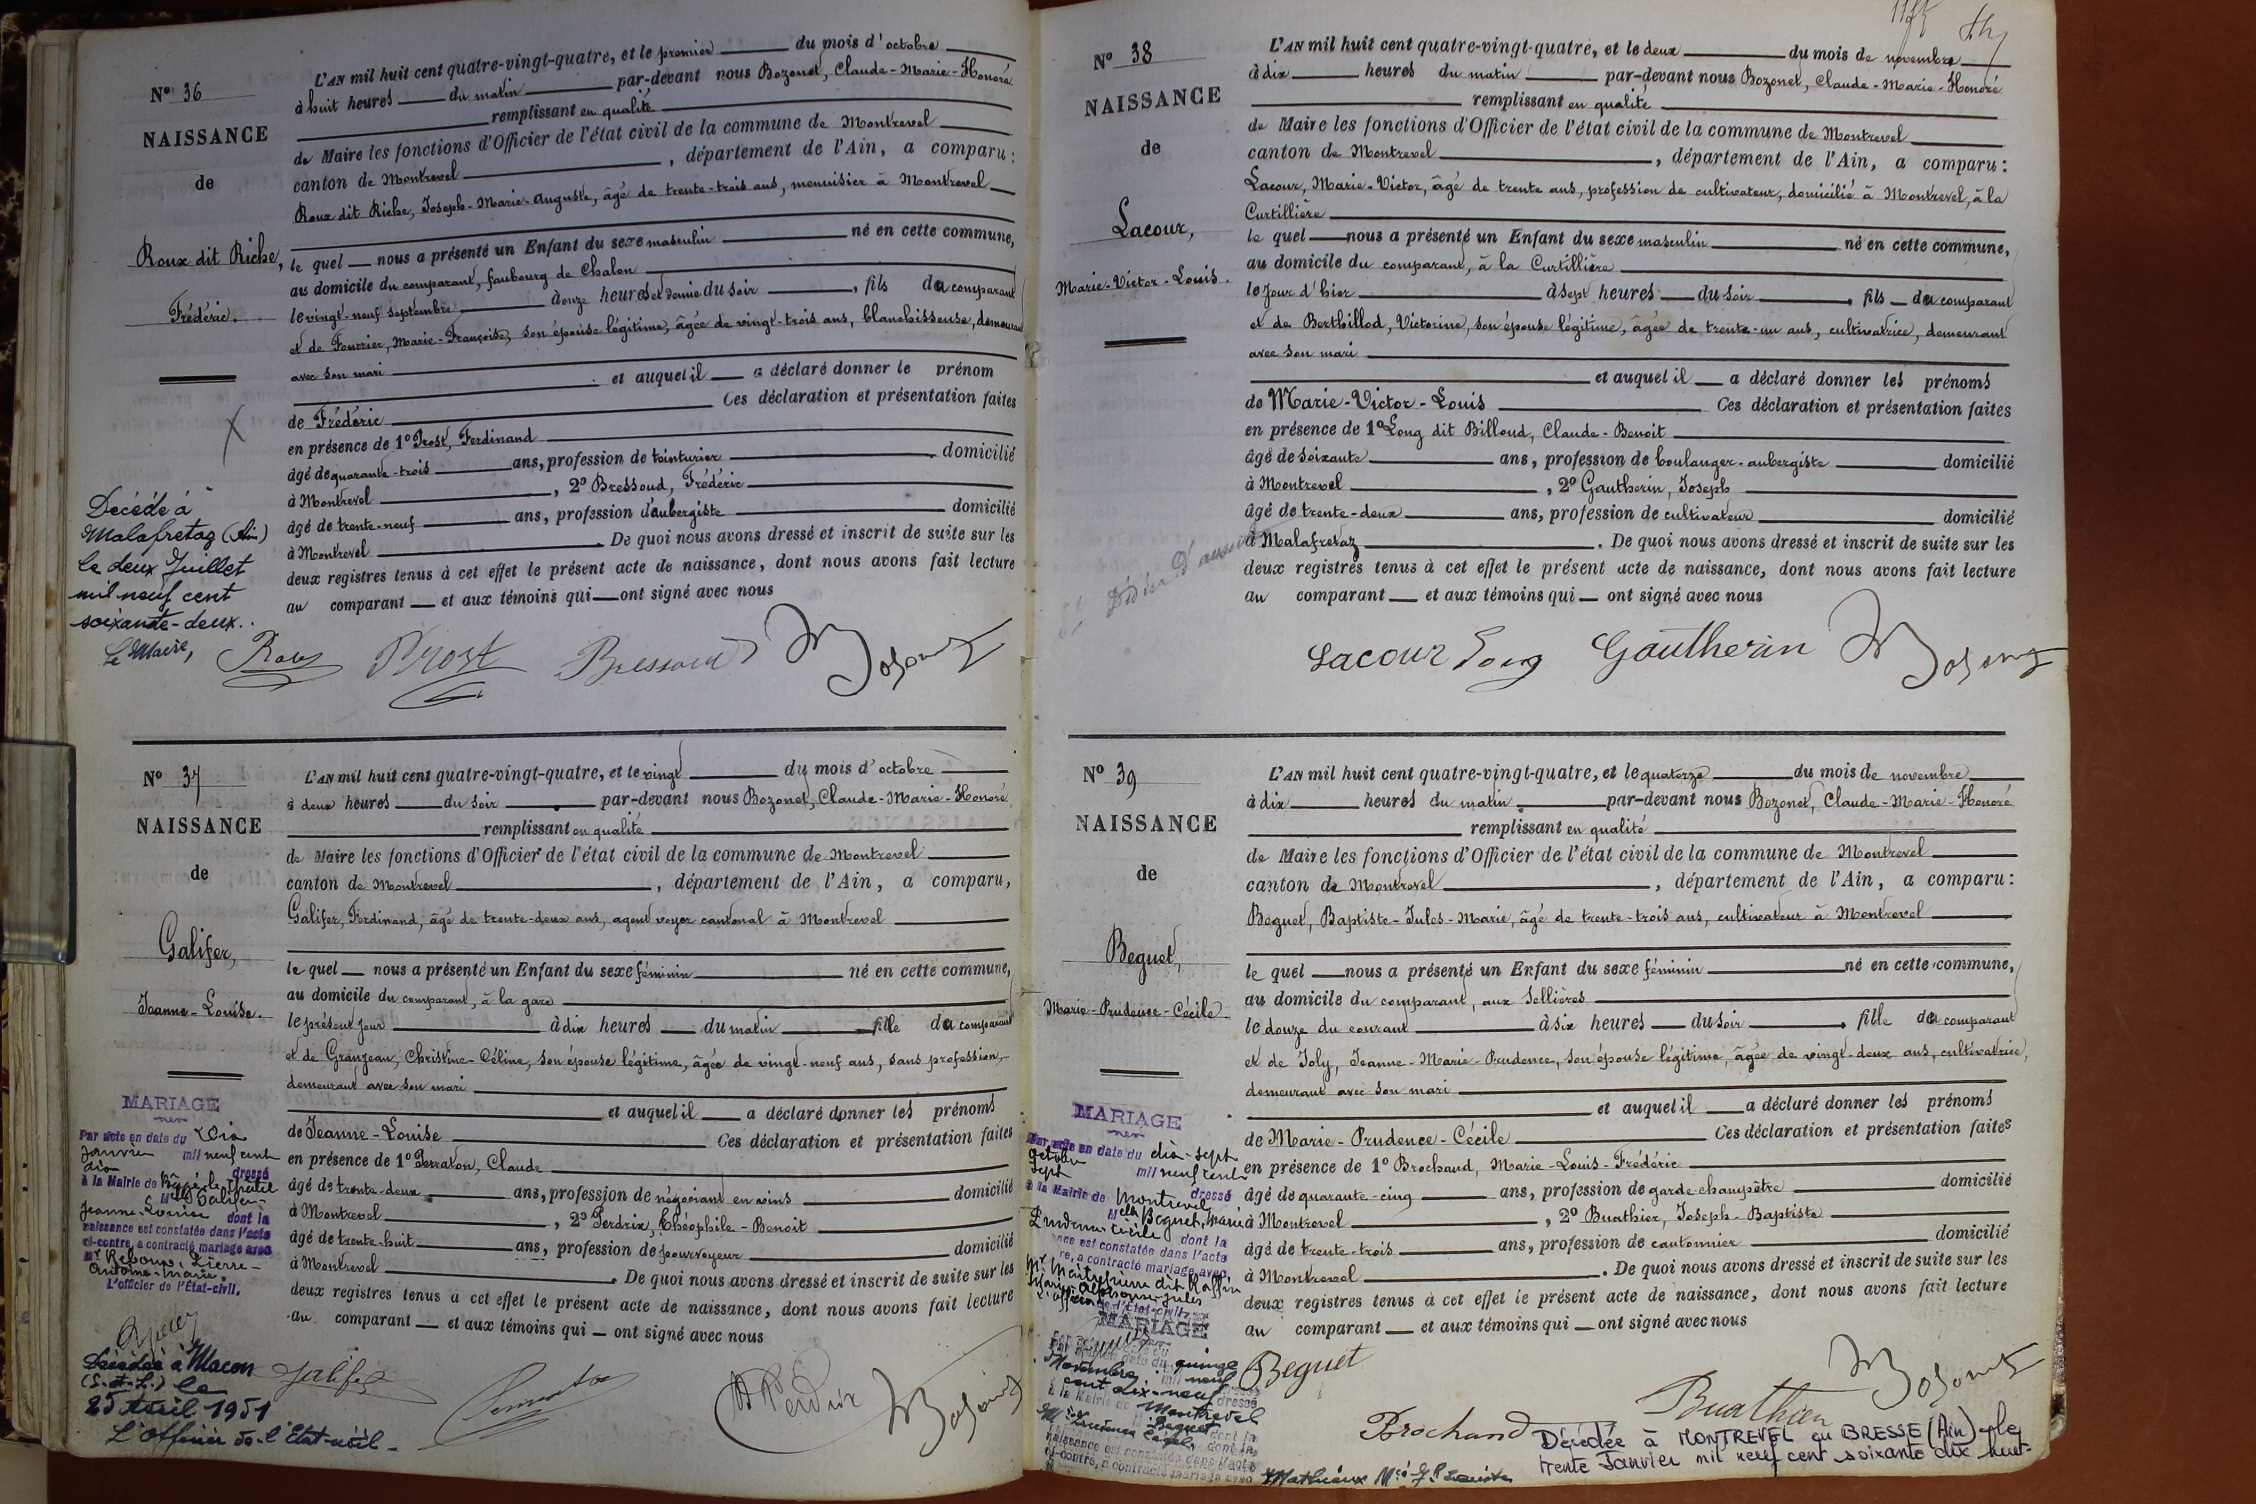 Nº 36
NAISSANCE
de
Roux dit Riche,
Frédéric.
L'AN mil huit cent quatre-vingt-quatre, et le premier du mois d'octobre
à huit heures du matin par-devant nous Bozonet, Claude-Marie-Honoré
remplissant en qualité
de Maire les fonctions d'Officier de l'état civil de la commune de Montrevel
canton de Montrevel, département de l'Ain, a comparu:
Roux dit Riche, Joseph-Marie-Auguste, âgé de trente-trois ans, menuisier à Montrevel
le quel nous a présenté un Enfant du sexe masculin né en cette commune,
au domicile du comparant, faubourg de Chalon
le vingt-neuf septembre à onze heures et demie du soir, fils du comparant
et de Fourrier, Marie-Françoise, son épouse légitime, âgée de vingt-trois ans, blanchisseuse, demeurant
avec son mari
et auquel il a déclaré donner le prénom
de Frédéric Ces déclaration et présentation faites
en présence de 1º Prost, Ferdinand
âgé de quarante-trois ans, profession de teinturier domicilié
à Montrevel, 2º Bressoud, Frédéric
âgé de trente-neuf ans, profession d'aubergiste domicilié
à Montrevel. De quoi nous avons dressé et inscrit de suite sur les
deux registres tenus à cet effet le présent acte de naissance, dont nous avons fait lecture
au comparant et aux témoins qui ont signé avec nous
Décédé à
Malafretaz (Ain)
le deux Juillet
mil neuf cent
soixante-deux.
Le Maire,
Roux Prost Bressoud Bozonet
Nº 37
NAISSANCE
de
Galifer,
Jeanne-Louise.
L'AN mil huit cent quatre-vingt-quatre, et le vingt du mois d'octobre
à deux heures du soir par-devant nous Bozonet, Claude-Marie-Honoré
remplissant en qualité
de Maire les fonctions d'Officier de l'état civil de la commune de Montrevel
canton de Montrevel, département de l'Ain, a comparu,
Galifer, Ferdinand, âgé de trente-deux ans, agent voyer cantonal à Montrevel
le quel nous a présenté un Enfant du sexe féminin né en cette commune,
au domicile du comparant, à la gare
le présent jour à dix heures du matin fille du comparant
et de Granjean, Christine-Céline, son épouse légitime, âgée de vingt-neuf ans, sans profession,
demeurant avec son mari
et auquel il a déclaré donner les prénoms
de Jeanne-Louise Ces déclaration et présentation faites
en présence de 1º Ferraton, Claude
âgé de trente-deux ans, profession de négociant en vins domicilié
à Montrevel, 2º Perdrix, Théophile-Benoit
âgé de trente-huit ans, profession de pourvoyeur domicilié
à Montrevel. De quoi nous avons dressé et inscrit de suite sur les
deux registres tenus à cet effet le présent acte de naissance, dont nous avons fait lecture
au comparant et aux témoins qui ont signé avec nous
MARIAGE
Par acte en date du dix
janvier mil neuf cent
dix dressé
à la Mairie de Bâgé-le-Châtel
Mlle Galifer
Jeanne-Louise dont la
naissance est constatée dans l'acte
ci-contre, a contracté mariage avec
Mr Reboux, Pierre-
Antoine-Marie.
L'officier de l'État-civil.
Décédée à Macon
(S.-et-L.) le
25 Avril 1951
L'Officier de l'Etat-civil
Galifer Perdrix Bozonet
Nº 38
NAISSANCE
de
Lacour,
Marie-Victor-Louis.
L'AN mil huit cent quatre-vingt-quatre, et le deux du mois de novembre
à dix heures du matin par-devant nous Bozonet, Claude-Marie-Honoré
remplissant en qualité
de Maire les fonctions d'Officier de l'état civil de la commune de Montrevel
canton de Montrevel, département de l'Ain, a comparu:
Lacour, Marie-Victor, âgé de trente ans, profession de cultivateur, domicilié à Montrevel, à la
Curtillière
le quel nous a présenté un Enfant du sexe masculin né en cette commune,
au domicile du comparant, à la Curtillière
le jour d'hier à sept heures du soir, fils du comparant
et de Berthillod, Victorine, son épouse légitime, âgée de trente-un ans, cultivatrice, demeurant
avec son mari
et auquel il a déclaré donner les prénoms
de Marie-Victor-Louis Ces déclaration et présentation faites
en présence de 1º Long dit Billoud, Claude-Benoit
âgé de soixante ans, profession de boulanger-aubergiste domicilié
à Montrevel, 2º Gautherin, Joseph
âgé de trente-deux ans, profession de cultivateur domicilié
à Malafretaz. De quoi nous avons dressé et inscrit de suite sur les
deux registres tenus à cet effet le présent acte de naissance, dont nous avons fait lecture
au comparant et aux témoins qui ont signé avec nous
Lacour Long Gautherin Bozonet
Nº 39
NAISSANCE
de
Beguet,
Marie-Prudence-Cécile
L'AN mil huit cent quatre-vingt-quatre, et le quatorze du mois de novembre
à dix heures du matin par-devant nous Bozonet, Claude-Marie-Honoré
remplissant en qualité
de Maire les fonctions d'Officier de l'état civil de la commune de Montrevel
canton de Montrevel, département de l'Ain, a comparu:
Beguet, Baptiste-Jules-Marie, âgé de trente-trois ans, cultivateur à Montrevel
le quel nous a présenté un Enfant du sexe féminin né en cette commune,
au domicile du comparant, aux Sellières
le douze du courant à six heures du soir, fille du comparant
et de Joly, Jeanne-Marie-Prudence, son épouse légitime, âgée de vingt-deux ans, cultivatrice,
demeurant avec son mari
et auquel il a déclaré donner les prénoms
de Marie-Prudence-Cécile Ces déclaration et présentation faites
en présence de 1º Brochand, Marie-Louis-Frédéric
âgé de quarante-cinq ans, profession de garde-champêtre domicilié
à Montrevel, 2º Buathier, Joseph-Baptiste
âgé de trente-trois ans, profession de cantonnier domicilié
à Montrevel. De quoi nous avons dressé et inscrit de suite sur les
deux registres tenus à cet effet le présent acte de naissance, dont nous avons fait lecture
au comparant et aux témoins qui ont signé avec nous
MARIAGE
Par acte en date du dix-sept
octobre mil neuf cent
sept dressé
à la Mairie de Montrevel
Melle Beguet, Marie
Prudence Cécile dont la
naissance est constatée dans l'acte
a contracté mariage avec,
Mr Maitrepierre dit Raffin
Marie Alphonse Jules
MARIAGE
quinze
Novembre mil neuf
cent dix-neuf dressé
à la Mairie de Montrevel
Beguet
Prudence Cécile dont la
naissance est constatée dans l'acte
ci-contre, a contracté mariage avec
Beguet Buathier Bozonet
Brochand
Décédée à MONTREVEL en BRESSE (Ain) le
trente Janvier mil neuf cent soixante dix huit